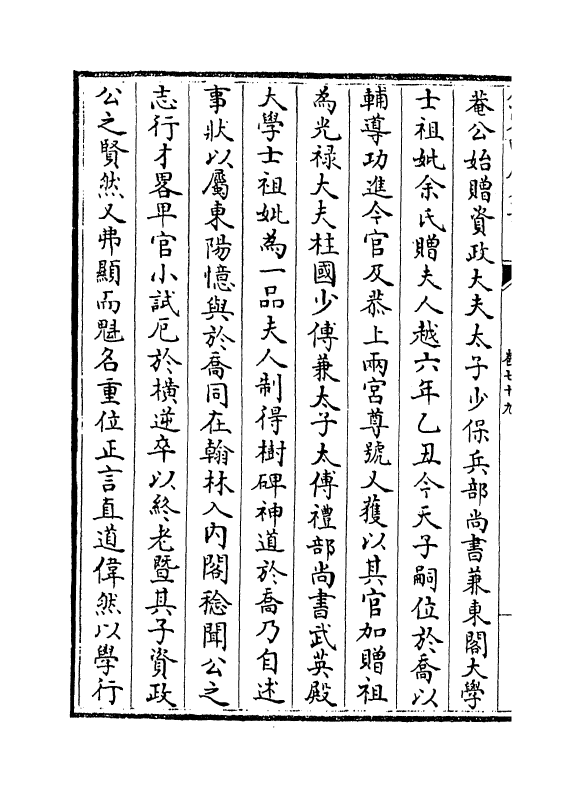 菴公始贈資政大夫太子少保兵部尚書兼東閣大學
士祖妣余氏贈夫人越六年乙丑今天子嗣位於喬以
輔導功進今官及恭上兩宮尊號又獲以其官加贈祖
為光禄大夫柱國少傅兼太子太傅禮部尚書武英殿
大學士祖妣為一品夫人制得樹碑神道於喬乃自述
事狀以屬東陽憶與於喬同在翰林入内閣稔聞公之
志行才畧早官小試厄於橫逆卒以終老暨其子資政
公之賢然又弗顯而魁名重位正言直道偉然以學行
卷七十九